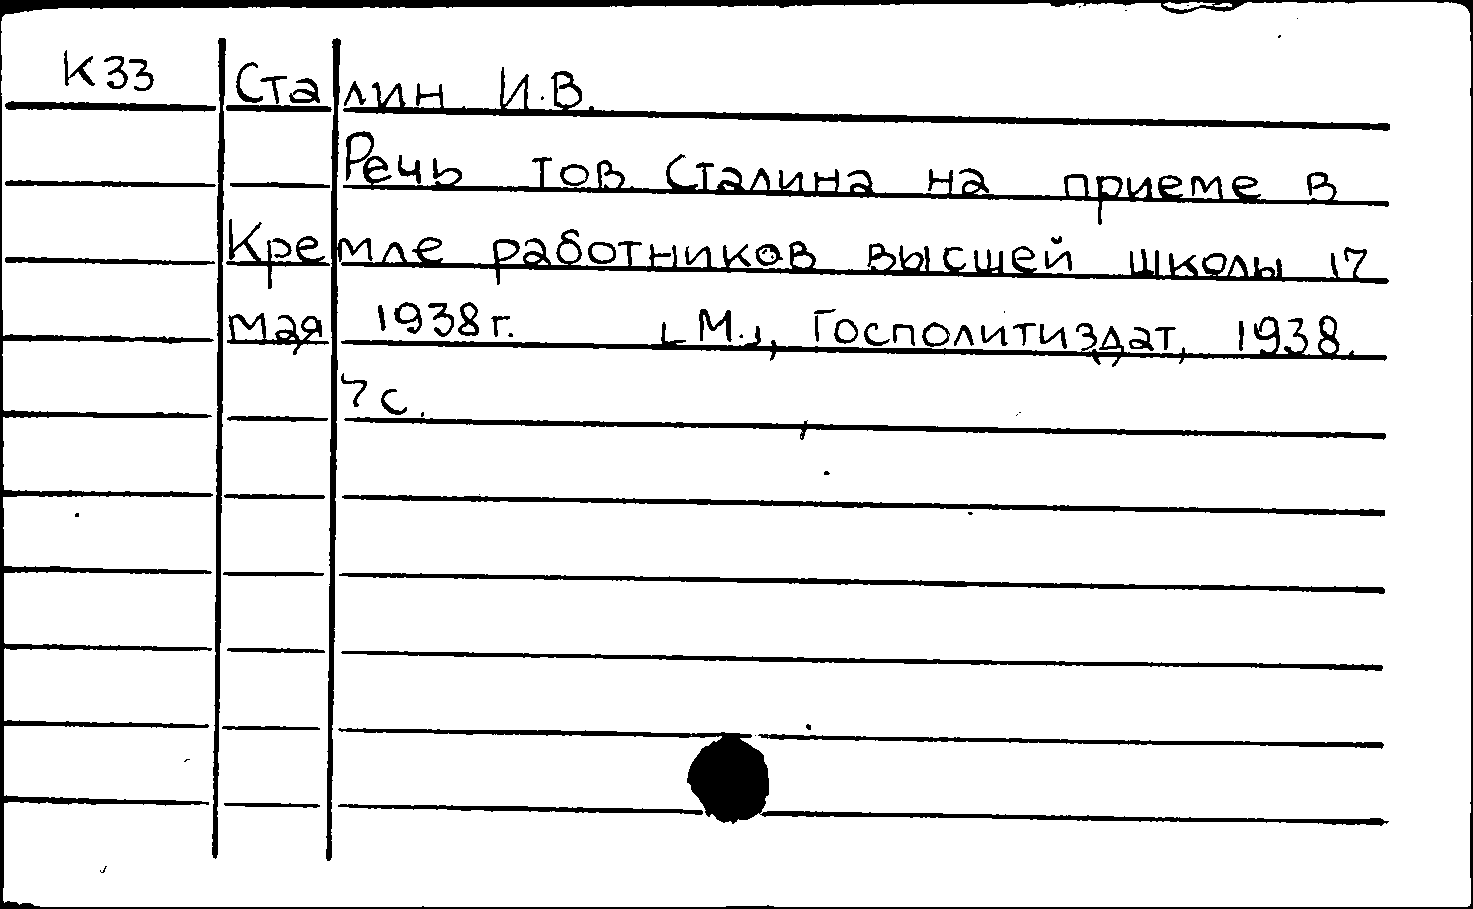 К33 Сталин И.В.
Речь тов. Сталина на приеме в
Кремле работников высшей школы 17
мая 1938г. [М.], Госполитиздат, 1938.
7 с.